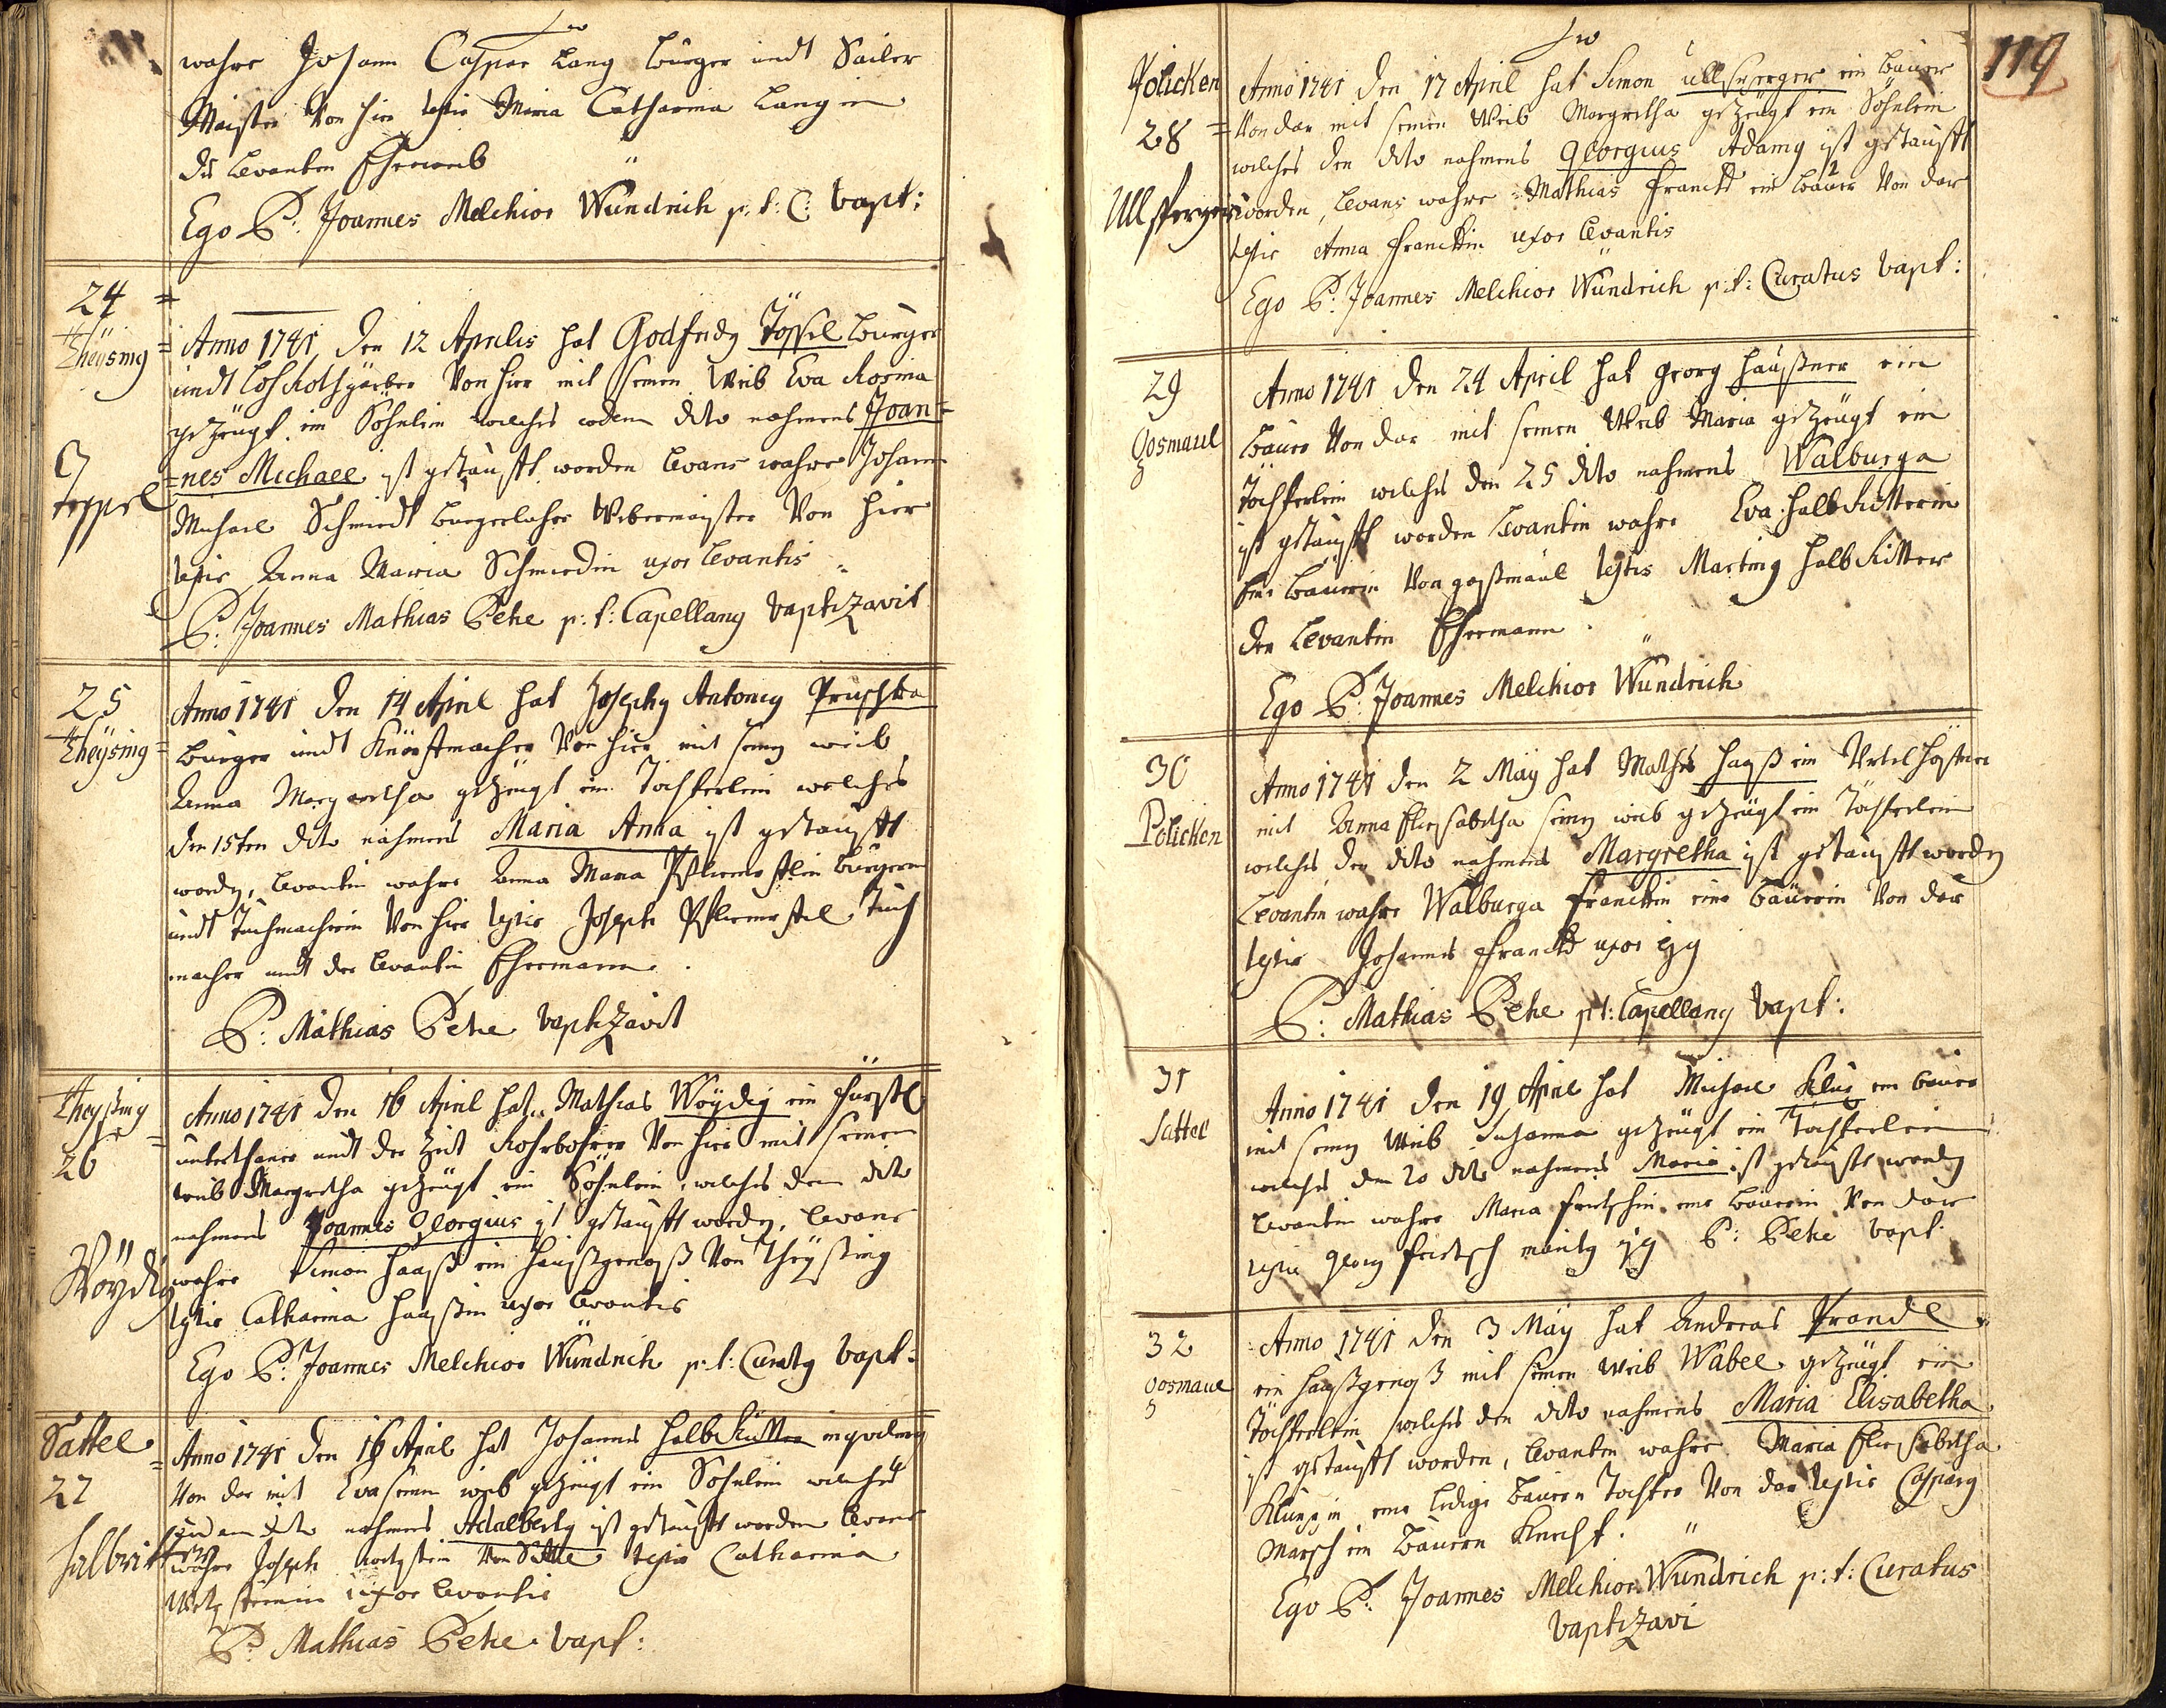 wahre Johann Caspar Lang burger undt Sailer
Maister Von hier testis Maria Catharina Langin
des levanten Eheweib
Ego P: Joannes Melchior Wündrich p: t: C: bapt:
24
Theÿsing
Toppel
Anno 1741 den 12 Aprilis hat Godfridg Töppel burger
undt Von hier mit seinen Weib Eva Rosina
gezeügt ein Söhnlein welches eodem dito nahmens Joan=
=nes Michael ist getaufft worden levans wahre Johann
Michael Schmiedt burgerlicher Webermaister Von hier
testis Anna Maria Schmiedin uxor levantis
P: Joannes Mathias Peke p: t: Capellang baptizavit
25
Theÿsing
Anno 1741 den 14 April hat Josephg Antonig Pruschka
burger undt Von hier mit seing weib
Anna Margaretha gezeügt ein Tochterlein welches
den 15ten dito nahmens Maria Anna ist getaufft
wordg, levantin wahre Anna Maria burgerin
undt Tuchmacherin Von hier testis Joseph Tuch
macher undt der levantin Ehemann.
P: Mathias Peke baptizavit
Theÿsing
26
Wöÿdig
Anno 1741 den 16 April hat Mathias Wöÿdig ein fürstl
unterthaner undt der Zeit Rohrbohrer Von hier mit seinen
weib Margretha gezeügt ein Söhnlein, welches den dito
nahmens Joannes Georgius ist getaufft wordg, levans
wahre Simon Haaß ein Haußgenoß Von Theÿsing
testis Catharina Haaßin uxor levantis
Ego P: Joannes Melchior Wündrich p: t: Curatg bapt:
Sattel
27
halbritter
Anno 1741 den 16 April hat Johannes halbRitter inquiling
Von dar mit Eva seinen weib gezeügt ein Sohnlein welches
dito nahmens Adalbertg ist getaufft worden levans
wahre Joseph Von Sattl testis Catharina
uxor levantis
P: Mathias Peke bapt:
119
Policken
28
Ullsperger
Anno 1741 den 17 April hat Simon Ullsperger ein bauer
Von dar mit seinen Weib Margretha gezeügt ein Söhnlein
welches den dito nahmens Georgius Adamg ist getaufft
worden, levans wahre Mathias Franckh ein bauer Von dar
testis Anna Franckin uxor levantis
Ego P: Joannes Melchior Wündrich p: t: Curatus bapt:
29
Gosmaul
Anno 1741 den 24 April hat Georg Haußner ein
bauer Von dar mit seinen Weib Maria gezeügt ein
Töchterlein welches den 25 dito nahmens Walburga
ist getaufft worden levantin wahre Eva halbRitterin
eine bauerin Von goßmaul testis Marting halbRitter
der levantin Ehemann.
Ego P: Joannes Melchior Wündrich
30
Policken
Anno 1741 den 2 Maÿ hat Mathes Haaß ein
mit Anna Elisabetha seing weib gezeügt ein Töchterlein
welches den dito nahmens Margretha ist getaufft wordg
levantin wahre Walburga Franckin eine bäuerin Von dar
testis Johannes Franckh uxor ejg
P: Mathias Peke p: t: Capellang bapt:
31
Sattel
Anno 1741 den 19 April hat Michael Klug ein bauer
mit seing Weib Susanna gezeügt ein Töchterlein
welches den 20 dito nahmens Maria ist getaufft wordg
levantin wahre Maria Fritschin eine bäuerin Von dar
testis Georg Fritsch maritg ejg P: Peke bapt:
32
Gosmaul
Anno 1741 den 3 Maÿ hat Andreas Prandl
ein Haußgenoß mit seinen Weib Wabel gezeügt ein
Töchterlein welches den dito nahmens Maria Elisabetha
ist getaufft worden, levantin wahre Maria Elisabetha
eine ledige bauern Tochter Von dar testis Casparg
Marsch ein Bauern Knecht.
Ego P: Joannes Melchior Wündrich p: t: Curatus
baptizavi